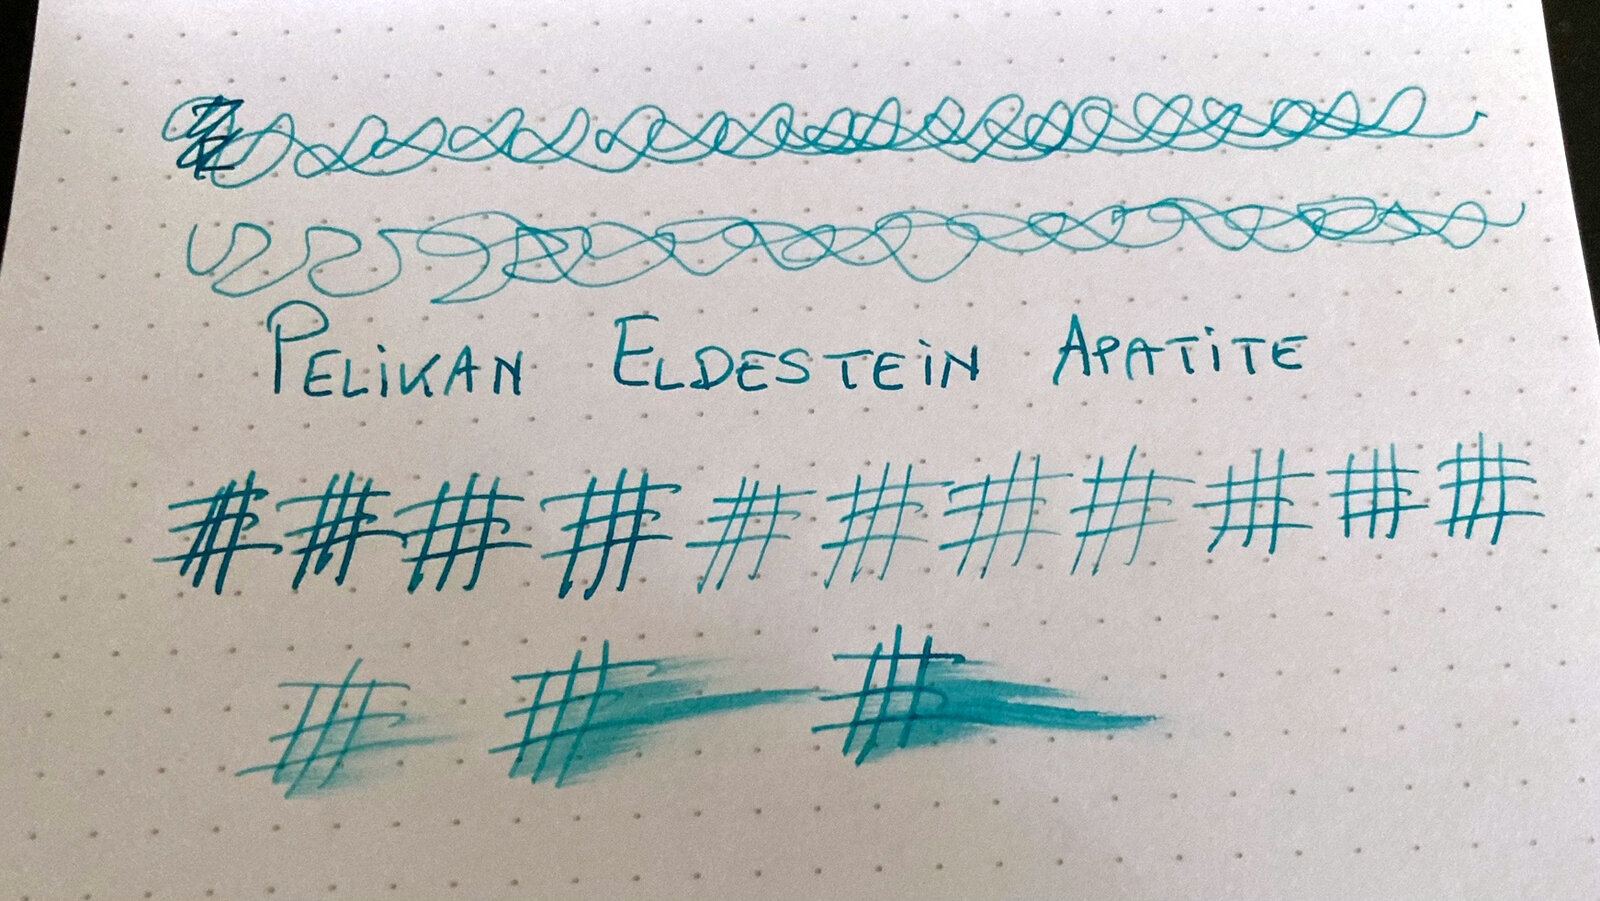 PELiKAN ELDESTEiN APATiTE